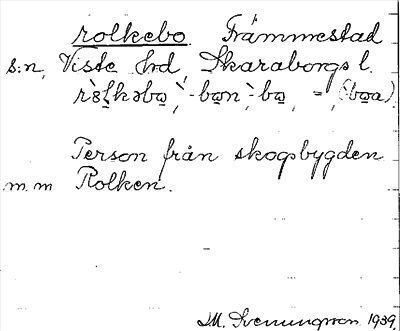 rolkebo. Främmestad
s:n, Viste hrd, Skaraborgs l.
Person från skogsbygden
m.m Rolken.
M. Svenungsson 1939.